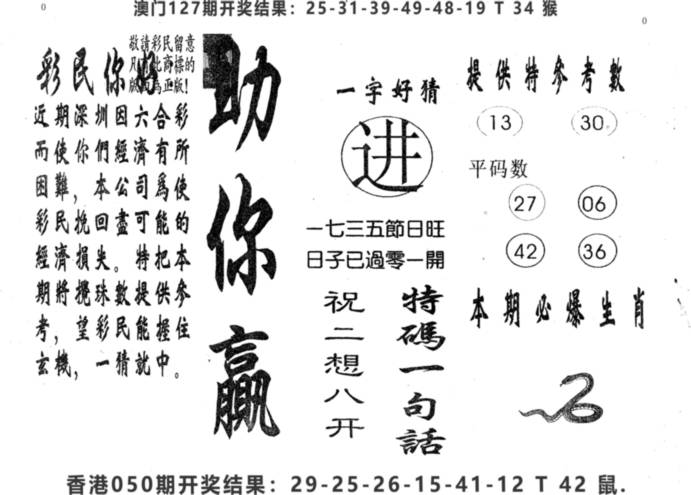 澳门127期开奖结果：25-31-39-49-48-19 T 34 猴
敬請彩民留意
彩民你好
近期深圳因六合彩
而使你們經濟有所
困難，本公司為使
彩民挽回盡可能的
經濟損失。特把本
期將攪珠數提供參
考，望彩民能握住
玄機，一猜就中。
助你贏
一字好猜
进
一七三五節日旺
日子已過零一開
特碼一句話
祝二想八开
提供特参考數
13 30
平码数
27 06
42 36
本期必爆生肖
香港050期开奖结果：29-25-26-15-41-12 T 42 鼠.